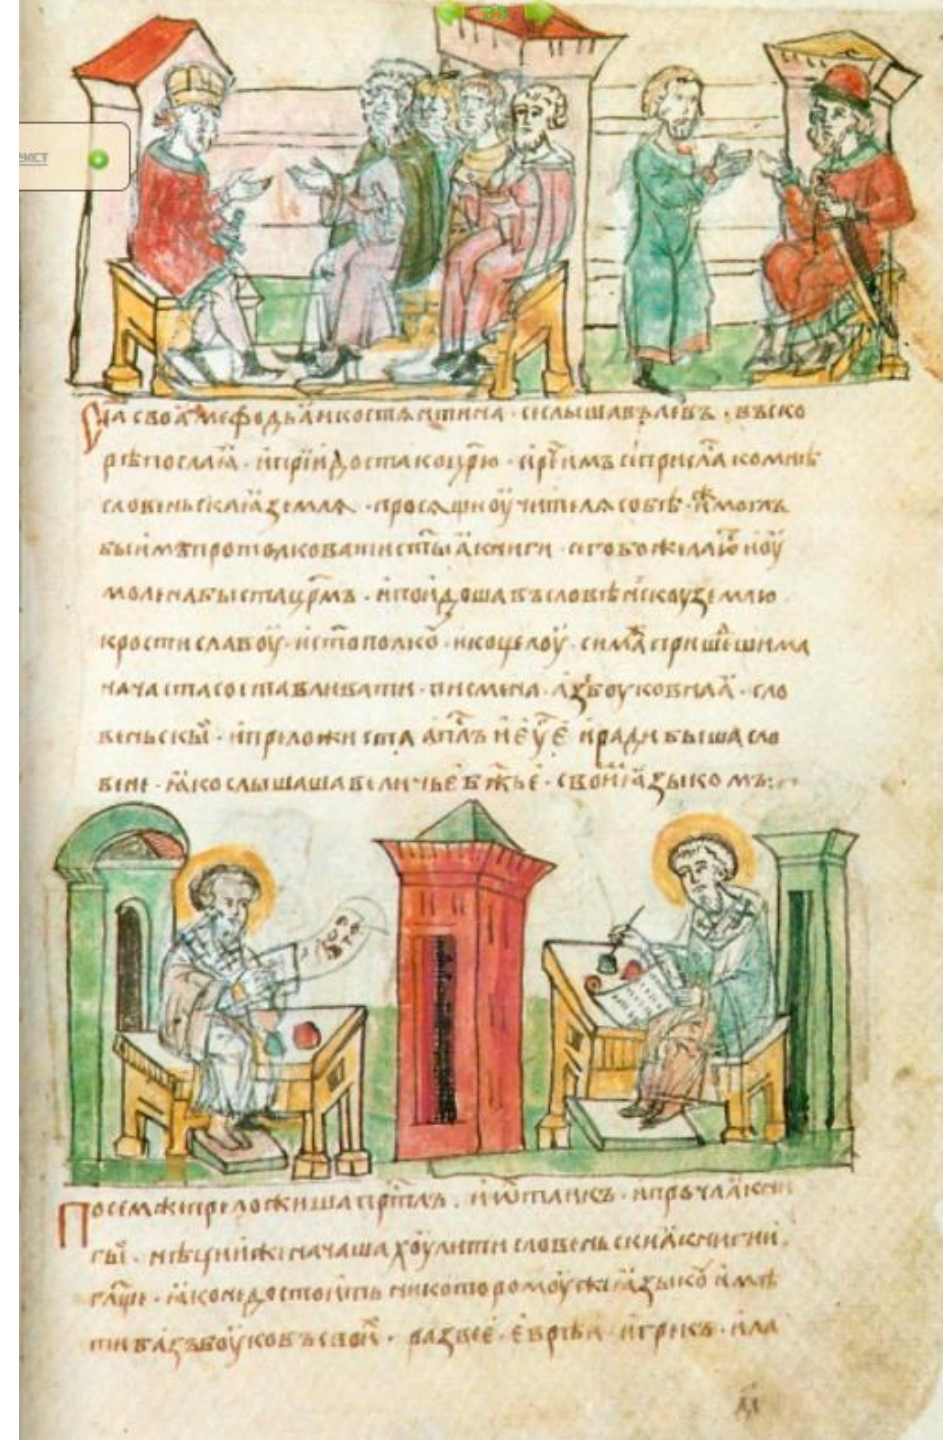 на своа мефодьа и костѧнтина · си слышавъ левъ · въско
рѣ посла ꙗ · и приидоста ко црю · и рече имъ се присла ко мнѣ
словеньскаꙗ землѧ · просѧщи оучителѧ собѣ · иже моглъ
бы имъ протолковати стыа книги · сего бо желаю и оу
молена быста црмъ · и поидоша въ словѣньскоу землю
к ростиславоу · и стополкоу · и коцелоу · сима пришедшима
начаста составливати · писмена · азъбоуковнаа · сло
веньскы · и преложиста апслъ и еуе и ради быша сло
вене · ꙗко слышаша величье бжье · своимь ꙗзыкомъ :
Посем же преложиша прмтлъ · и ѡтаикъ · и прочаа кни
гы · нѣции же начаша хоулити словеньскиа книги и
глще · ꙗко не достоить никоторомоу же ꙗзыкоу имѣ
ти базъбоуковъ своих · развее · евреи · и грикъ · и ла